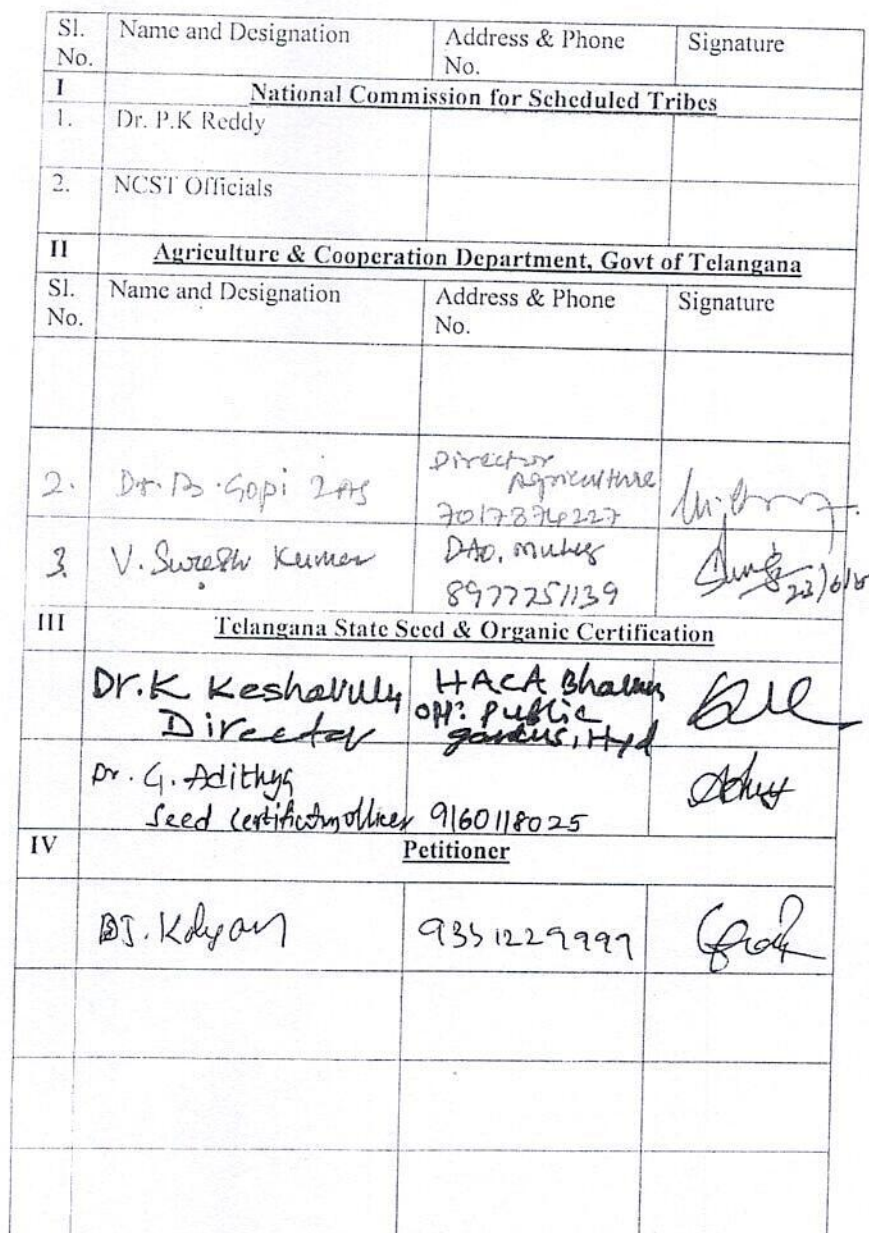 Sl. No. Name and Designation Address & Phone No. Signature
I National Commission for Scheduled Tribes
1. Dr. P.K Reddy
2. NCST Officials
II Agriculture & Cooperation Department, Govt of Telangana
Sl. No. Name and Designation Address & Phone No. Signature
2. Dr. B. Gopi IAS Director Agriculture
7017874227
3. V. Suresh Kumar DAO,
8977251139 23/6/
III Telangana State Seed & Organic Certification
Dr. K Keshavulu HACA Bhavan
Director opp: Public
gardens, Hyd
Dr. G. Adithya
Seed certification officer 9160118025
IV Petitioner
Kalyan